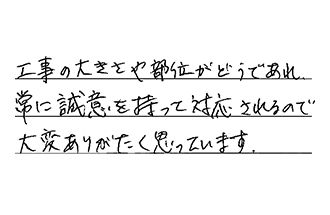 工事の大きさや部位がどうであれ、
常に誠意を持って対応されるので
大変ありがたく思っています。